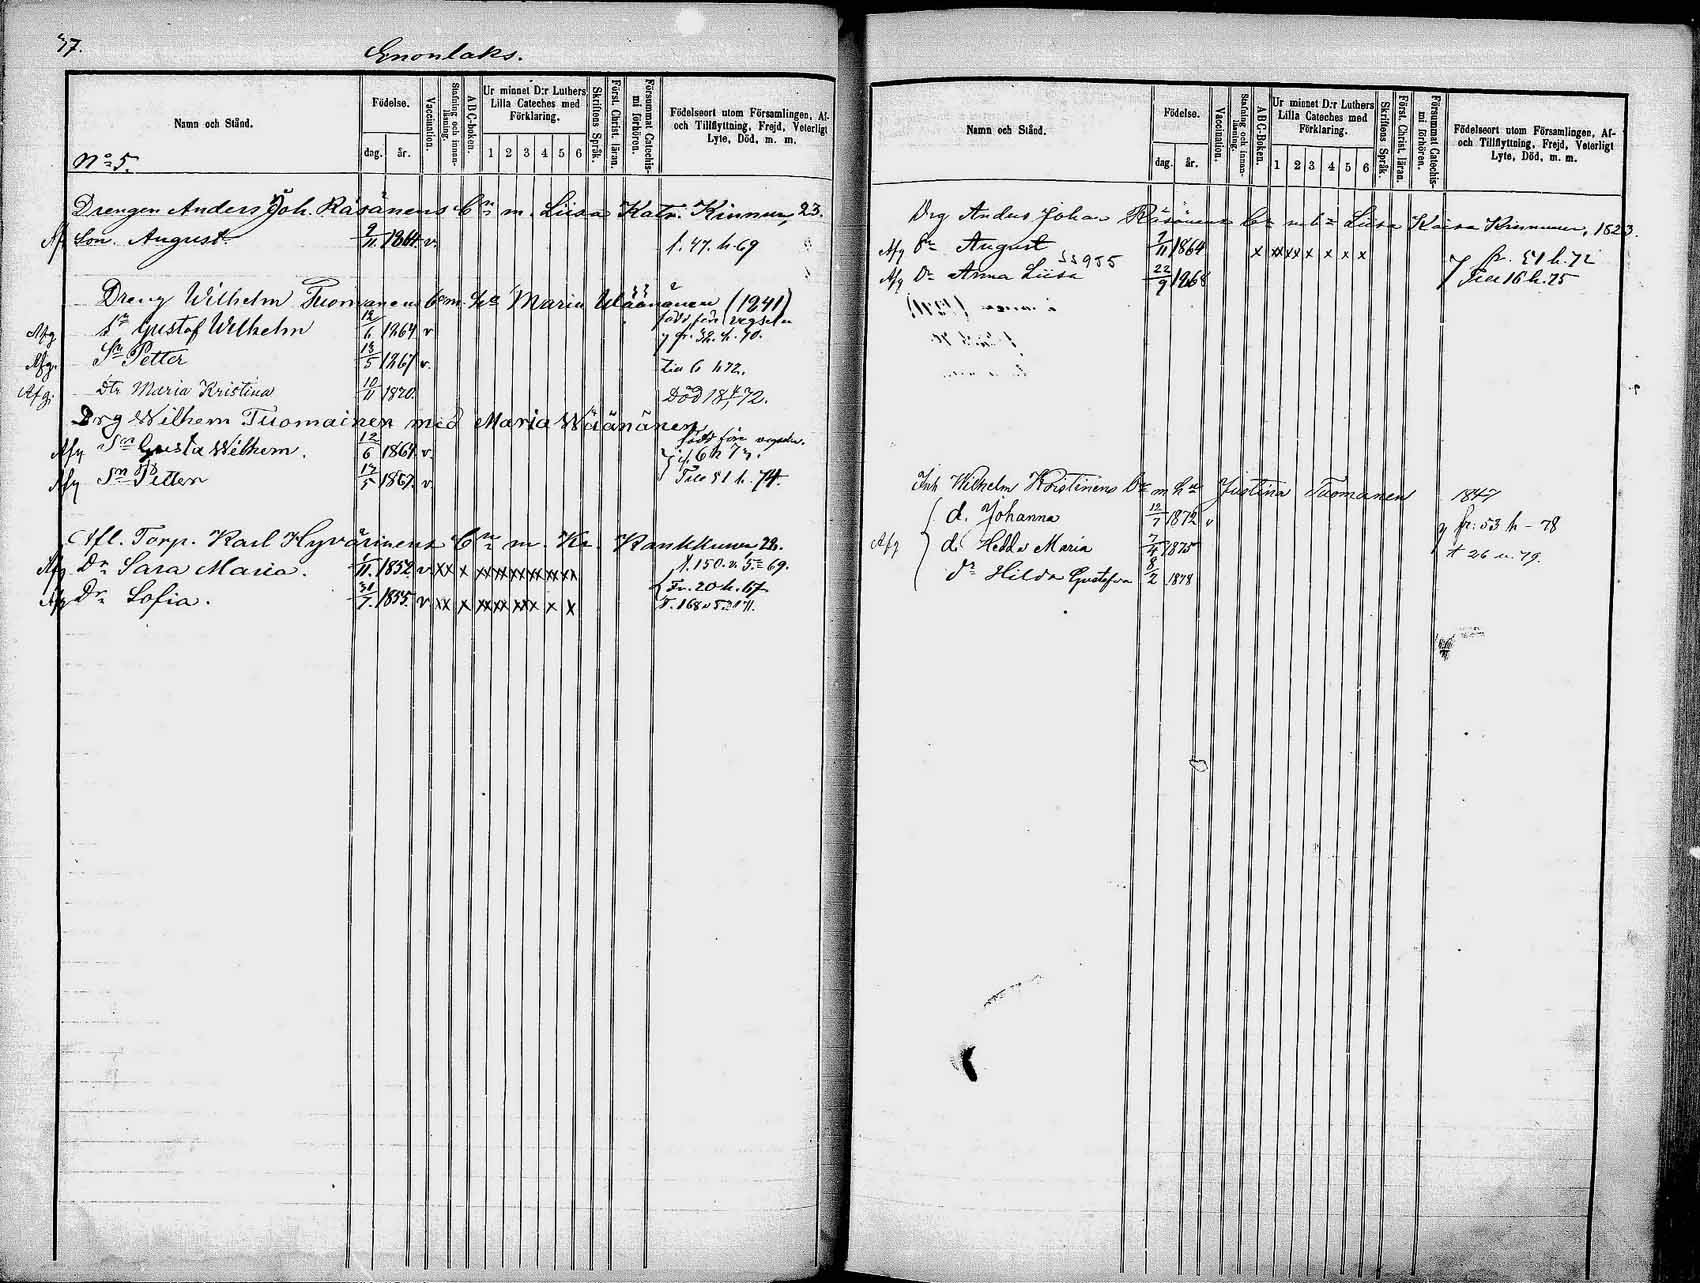 37.
Enonlaks.
Namn och Stånd.
Födelse.
dag. år.
Vaccination.
Stafning och innanläsning.
ABC-boken.
Ur minnet D:r Luthers Lilla Cateches med Förklaring.
1 2 3 4 5 6
Skriftens Språk.
Först. Christ. läran.
Försummat Catechismi förhören.
Födelseort utom Församlingen, Af- och Tillflyttning, Frejd, Veterligt Lyte, Död, m. m.
No 5.
Drengen Anders Joh. Räsänens Bn m. Liisa Katr. Kinnun, 23.
Af Son. August. 2/11 1864 v. f. 47. h. 69
Dreng Wilhelm Tuomanens Bn m. Ha Maria Wäänänen (1841)
Afg Sn Gustaf Wilhelm 12/6 1864 v född före vegseln
y fr. 32. h. 70.
Afg. Sn Petter 13/5 1867 v. till 6 h 72.
Afg. Dtr Maria Kristina 10/11 1870. Död 18 4/ 72.
Drg Wilhem Tuomainen med Maria Wäänänen
Afg Sn Gusta Wilhem. 12/6 1864 v. född före vegseln.
if. 6 h 73.
Afg Sn Petter 13/5 1867. v. Till 51 h. 74.
Afl. Torp. Karl Hyvärinens Bn m. Kr. Kankkunen 28.
Afg Dr Sara Maria. 1/11. 1852. v xx x xx xx xx x x x f. 150. n. 5 69.
Afg Dr Sofia. 31/7. 1855. v xx x xx xx xx x x x Fr. 20 h. 67
F. 168 n 5 71.
Namn och Stånd.
Födelse.
dag. år.
Vaccination.
Stafning och innanläsning.
ABC-Boken.
Ur minnet D:r Luthers Lilla Cateches med Förklaring.
1 2 3 4 5 6
Skriftens Språk.
Först. Christ. läran.
Försummat Catechismi förhören.
Födelseort utom Församlingen, Af- och Tillflyttning, Frejd, Veterligt Lyte, Död, m. m.
Drg Anders Johan Räsänens Bn m ha Liisa Kaisa Kinnunen, 1823.
Afg Sn August 2/11 1864 x xx xx x x x x fr. 51 h. 72
Afg Dr Anna Liisa 22/9 1868 Till 16 h. 75
Inh Wilhelm Koistinens Bn m ha Justina Tuomanen 1847
d. Johanna 12/7 1872 v y fr: 53 h - 78
Afg d. Hedda Maria 7/4 1875 t 26 n. 79.
dr Hilda Gustafva 8/2 1878